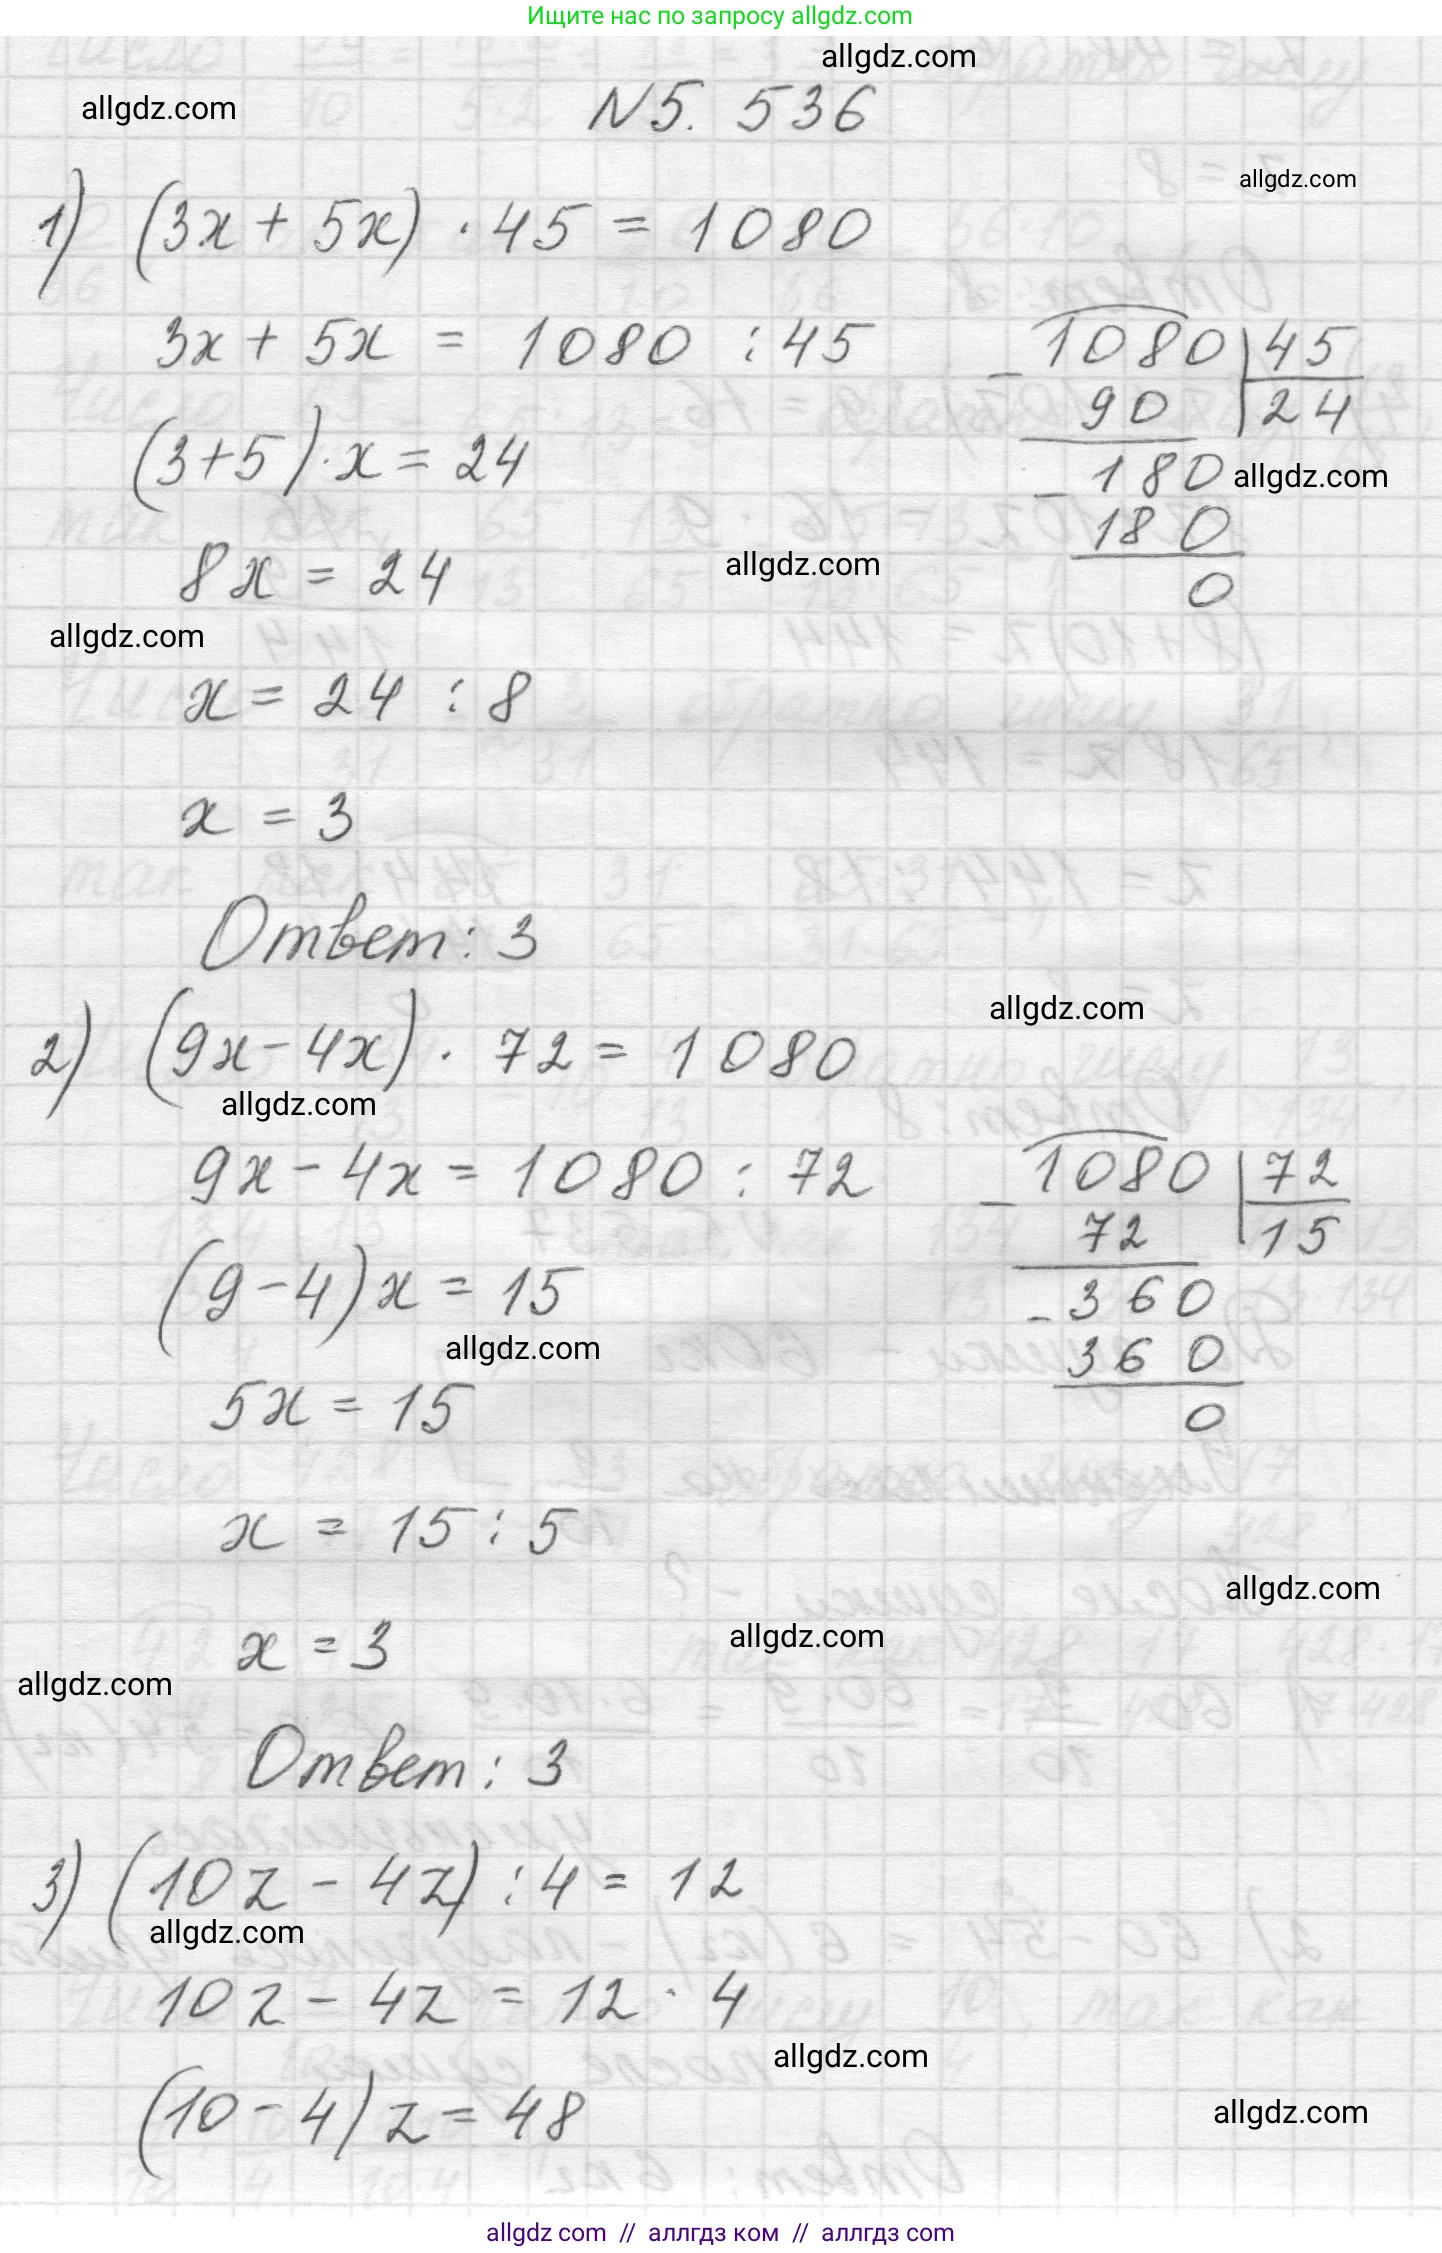 Ищите нас по запросу allgdz.com
allgdz.com
allgdz.com
N 5. 536
allgdz.com
1) (3x + 5x) · 45 = 1080
3x + 5x = 1080 : 45
1080 | 45
- 90 | 24
(3+5) · x = 24
- 180
allgdz.com
180
0
8x = 24
allgdz.com
allgdz.com
x = 24 : 8
x = 3
Ответ: 3
allgdz.com
2) (9x - 4x) · 72 = 1080
allgdz.com
9x - 4x = 1080 : 72
1080 | 72
- 72 | 15
(9 - 4) x = 15
- 360
360
0
allgdz.com
5x = 15
x = 15 : 5
allgdz.com
x = 3
allgdz.com
allgdz.com
Ответ: 3
3) (10z - 4z) : 4 = 12
allgdz.com
10z - 4z = 12 · 4
allgdz.com
(10 - 4) z = 48
allgdz.com
allgdz com // аллгдз ком // аллгдз com